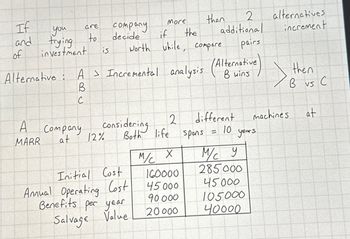 If you are company more than 2 alternatives
and trying to decide if the additional increment
of investment is worth while, compare pairs
Alternative : A > Incremental analysis (Alternative B wins) > then
B B vs C
C
A Company considering 2 different machines at
MARR at 12% Both life spans = 10 years
M/c X M/c y
Initial Cost 160000 285000
Annual Operating Cost 45000 45000
Benefits per year 90000 105000
Salvage Value 20000 40000